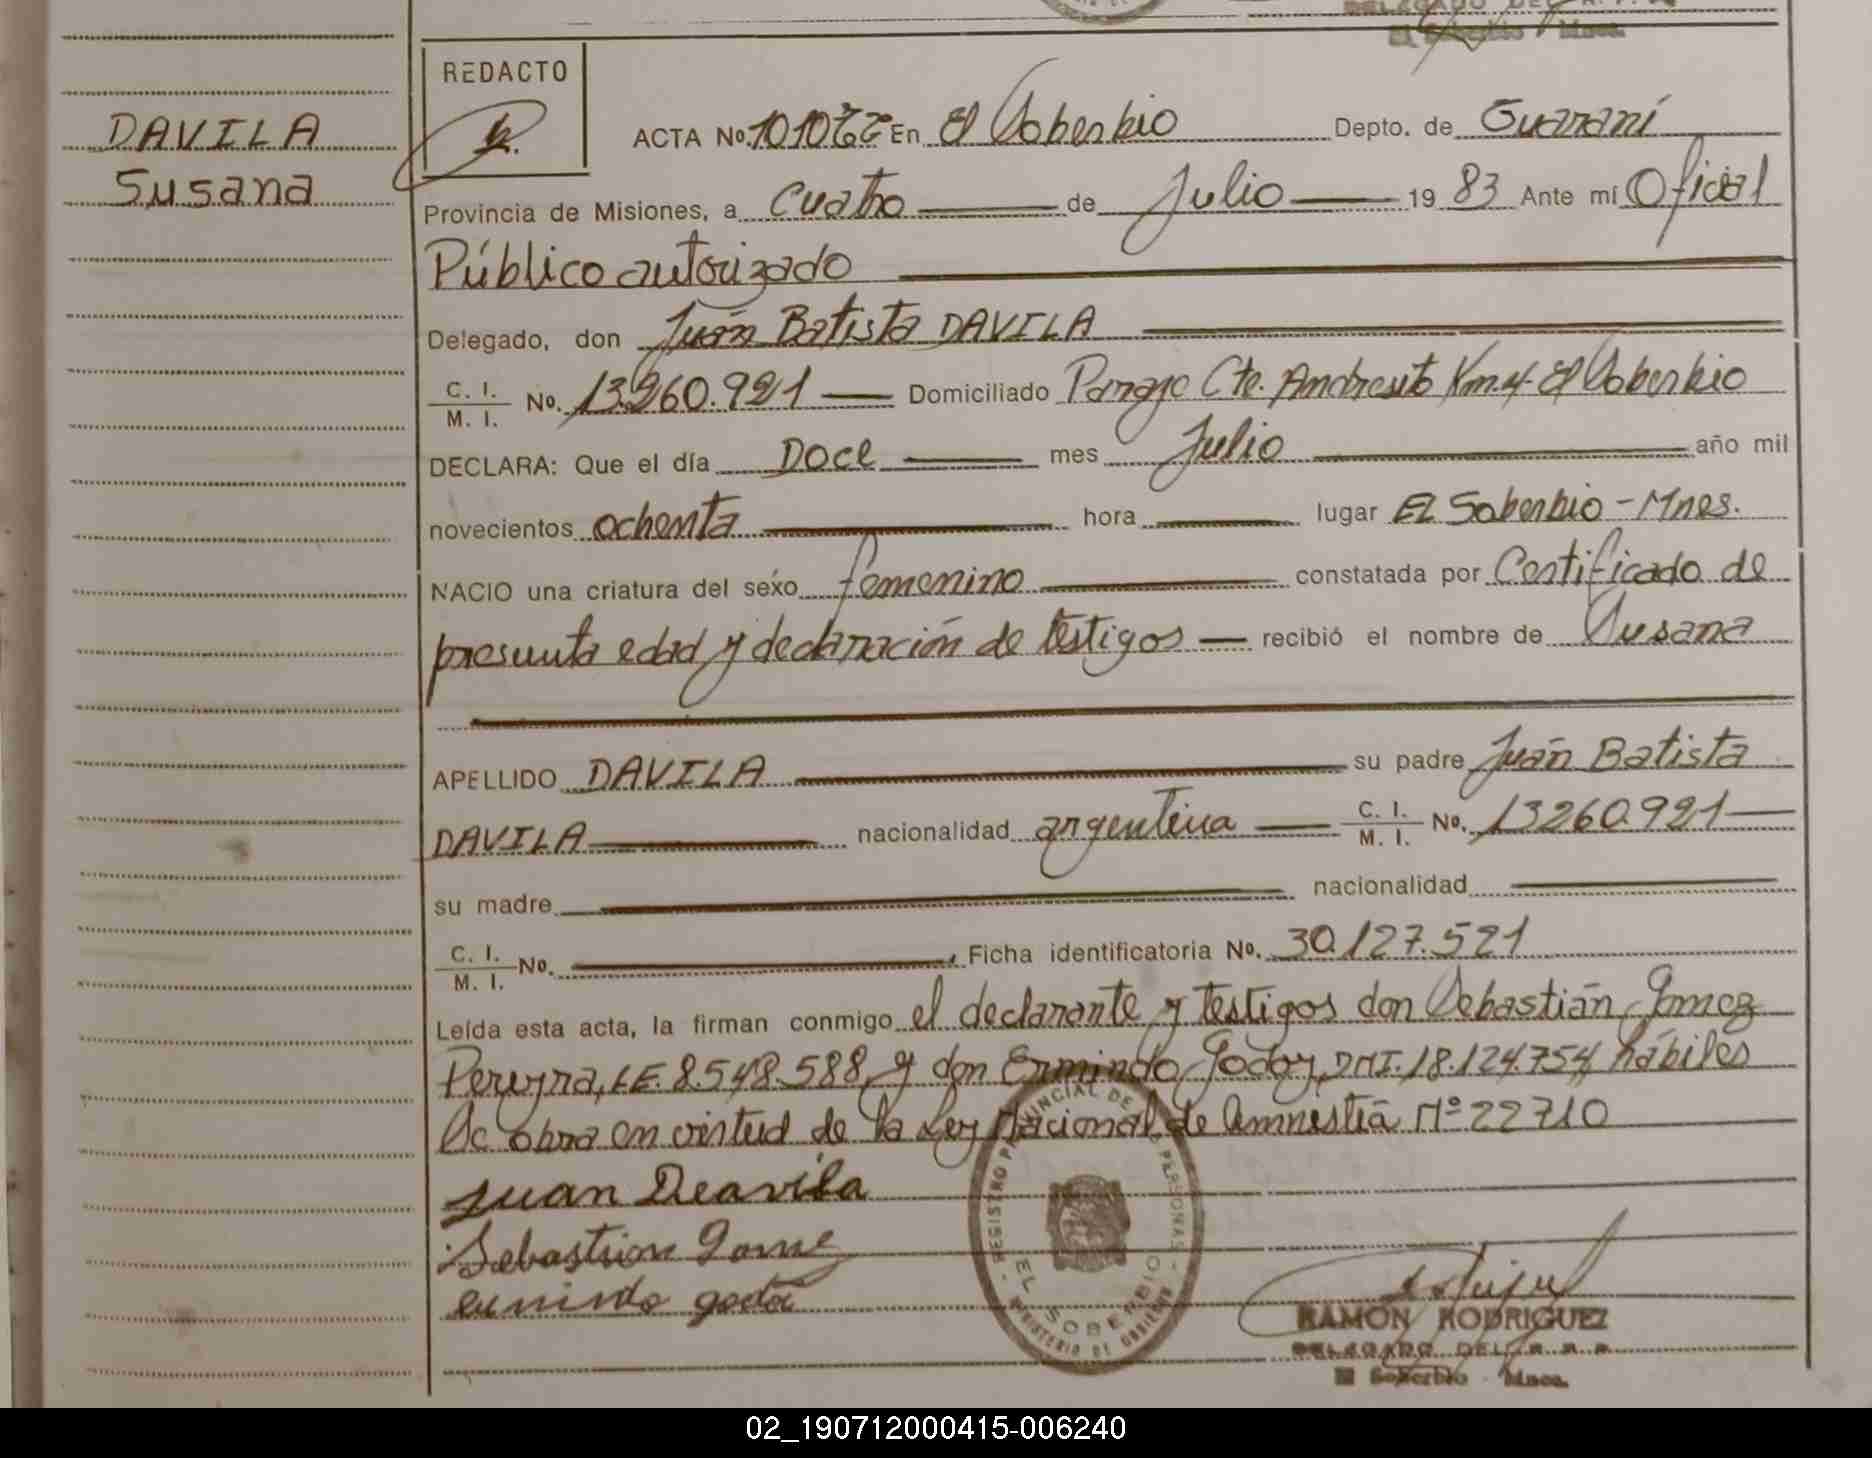 DAVILA
Susana
REDACTO
ACTA No. En El Soberbio Depto. de Guaraní
Provincia de Misiones, a Cuatro de Julio 19 83 Ante mí Oficial
Público autorizado
Delegado, don Juán Batista DAVILA
C. I. M. I. No. 13.260.921 Domiciliado Paraje Cte. Andresito Km.4-El Soberbio
DECLARA: Que el día Doce mes Julio año mil
novecientos ochenta hora lugar El Soberbio - Mnes.
NACIO una criatura del sexo femenino constatada por Certificado de
presunta edad y declaración de testigos recibió el nombre de Susana
APELLIDO DAVILA su padre Juán Batista
DAVILA nacionalidad argentina C. I. M. I. No. 13260.921
su madre nacionalidad
C. I. M. I. No. Ficha identificatoria No. 30.127.521
Leída esta acta, la firman conmigo el declarante y testigos don Sebastián Gomez
Pereyra, L.E. 8.548.588, y don Ermindo Godoy, DNI. 18.124.754, hábiles
Se obra en virtud de la Ley Nacional de Amnistía Nº 22710
Juan Deavila
Sebastian Gome
ermindo godoi
REGISTRO PROVINCIAL DE PERSONAS
EL SOBERBIO
MINISTERIO DE GOBIERNO
RAMON RODRIGUEZ
DELEGADO DEL R. P. P.
El Soberbio - Mnes.
02_190712000415-006240